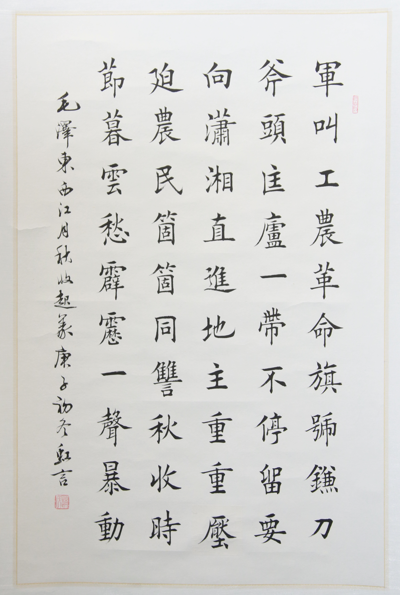 軍叫工農革命旗號鎌刀
斧頭匡廬一帶不停留要
向瀟湘直進地主重重壓
廹農民箇箇同讐秋收時
節暮雲愁霹靂一聲暴動
毛澤東西江月秋收起義庚子初冬虹言